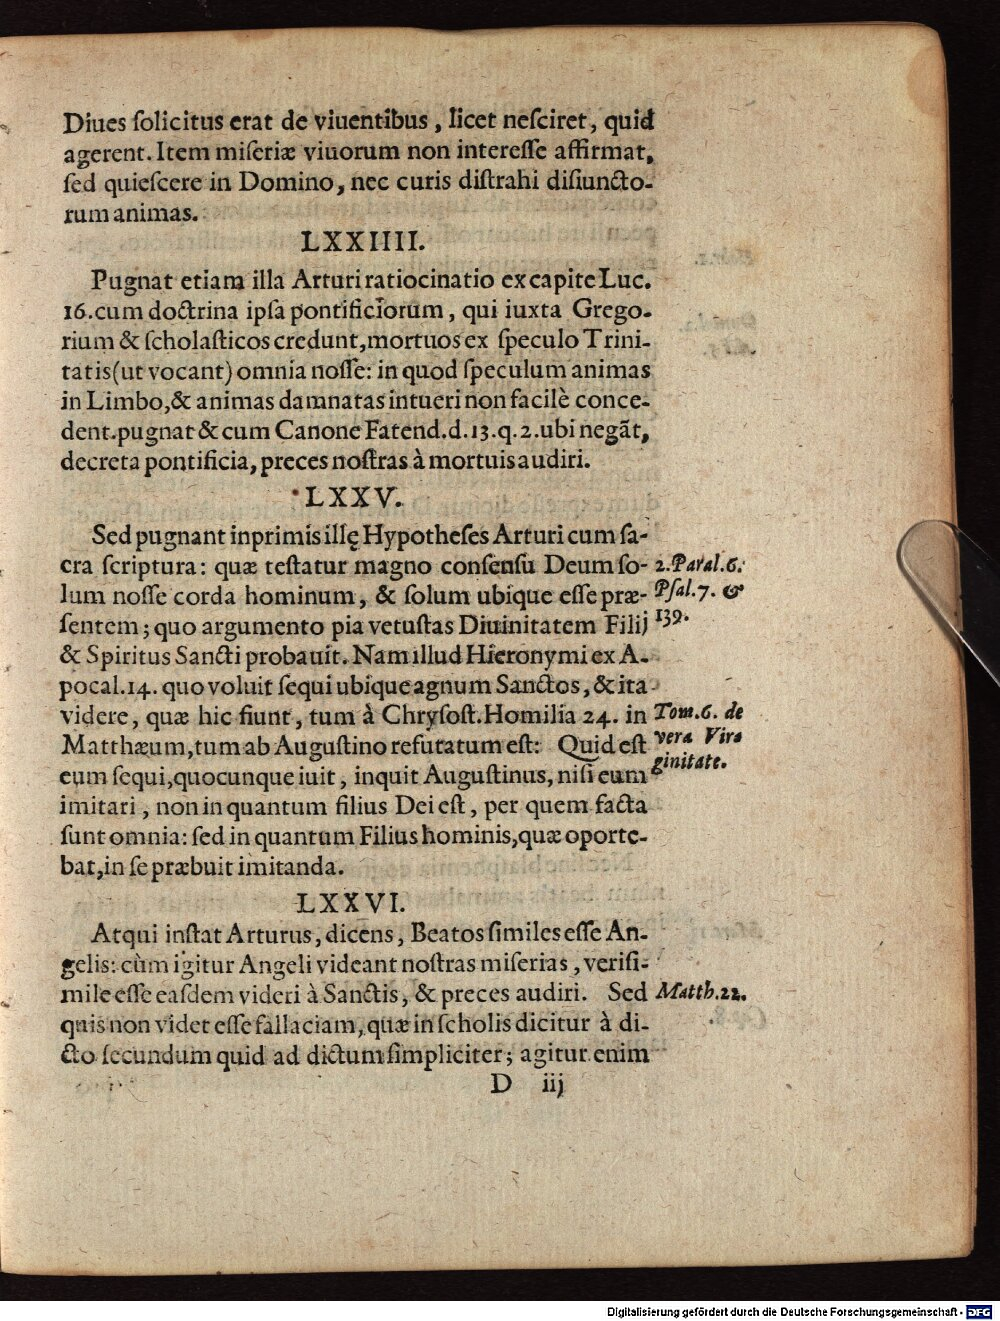 Diues ſolicitus erat de viuentibus, licet neſciret, quid
agerent. Item miſeriæ viuorum non intereſſe affirmat,
ſed quieſcere in Domino, nec curis diſtrahi diſiuncto-
rum animas.
LXXIIII.
Pugnat etiam illa Arturi ratiocinatio ex capite Luc.
16. cum doctrina ipſa pontificiorum, qui iuxta Grego-
rium & ſcholaſticos credunt, mortuos ex ſpeculo Trini-
tatis (ut vocant) omnia noſſe: in quod ſpeculum animas
in Limbo, & animas damnatas intueri non facilè conce-
dent. pugnat & cum Canone Fatend. d. 13. q. 2. ubi negāt,
decreta pontificia, preces noſtras à mortuis audiri.
LXXV.
Sed pugnant inprimis illę Hypotheſes Arturi cum ſa-
cra ſcriptura: quæ teſtatur magno conſenſu Deum ſo-
2. Paral. 6.
lum noſſe corda hominum, & ſolum ubique eſſe præ-
Pſal. 7. &
ſentem; quo argumento pia vetuſtas Diuinitatem Filij
139.
& Spiritus Sancti probauit. Nam illud Hieronymi ex A-
pocal. 14. quo voluit ſequi ubique agnum Sanctos, & ita
videre, quæ hic fiunt, tum à Chryſoſt. Homilia 24. in
Tom. 6. de
Matthæum, tum ab Auguſtino refutatum eſt: Quid eſt
vera Vir-
eum ſequi, quocunque iuit, inquit Auguſtinus, niſi eum
ginitate.
imitari, non in quantum filius Dei eſt, per quem facta
ſunt omnia: ſed in quantum Filius hominis, quæ oporte-
bat, in ſe præbuit imitanda.
LXXVI.
Atqui inſtat Arturus, dicens, Beatos ſimiles eſſe An-
gelis: cùm igitur Angeli videant noſtras miſerias, veriſi-
mile eſſe eaſdem videri à Sanctis, & preces audiri. Sed
Matth. 22.
quis non videt eſſe fallaciam, quæ in ſcholis dicitur à di-
cto ſecundum quid ad dictum ſimpliciter; agitur enim
D iij
Digitalisierung gefördert durch die Deutsche Forschungsgemeinschaft - DFG